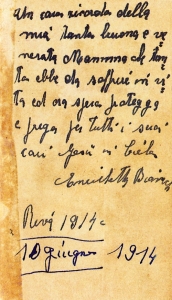 Un caro ricordo della
mia tanta buona e ve
nerata Mamma che tan
ta ebbe da soffrire in vi
ta ed ora spero protegga
e prega per tutti i suoi
cari
Enrichetta
1914
10 giugno 1914